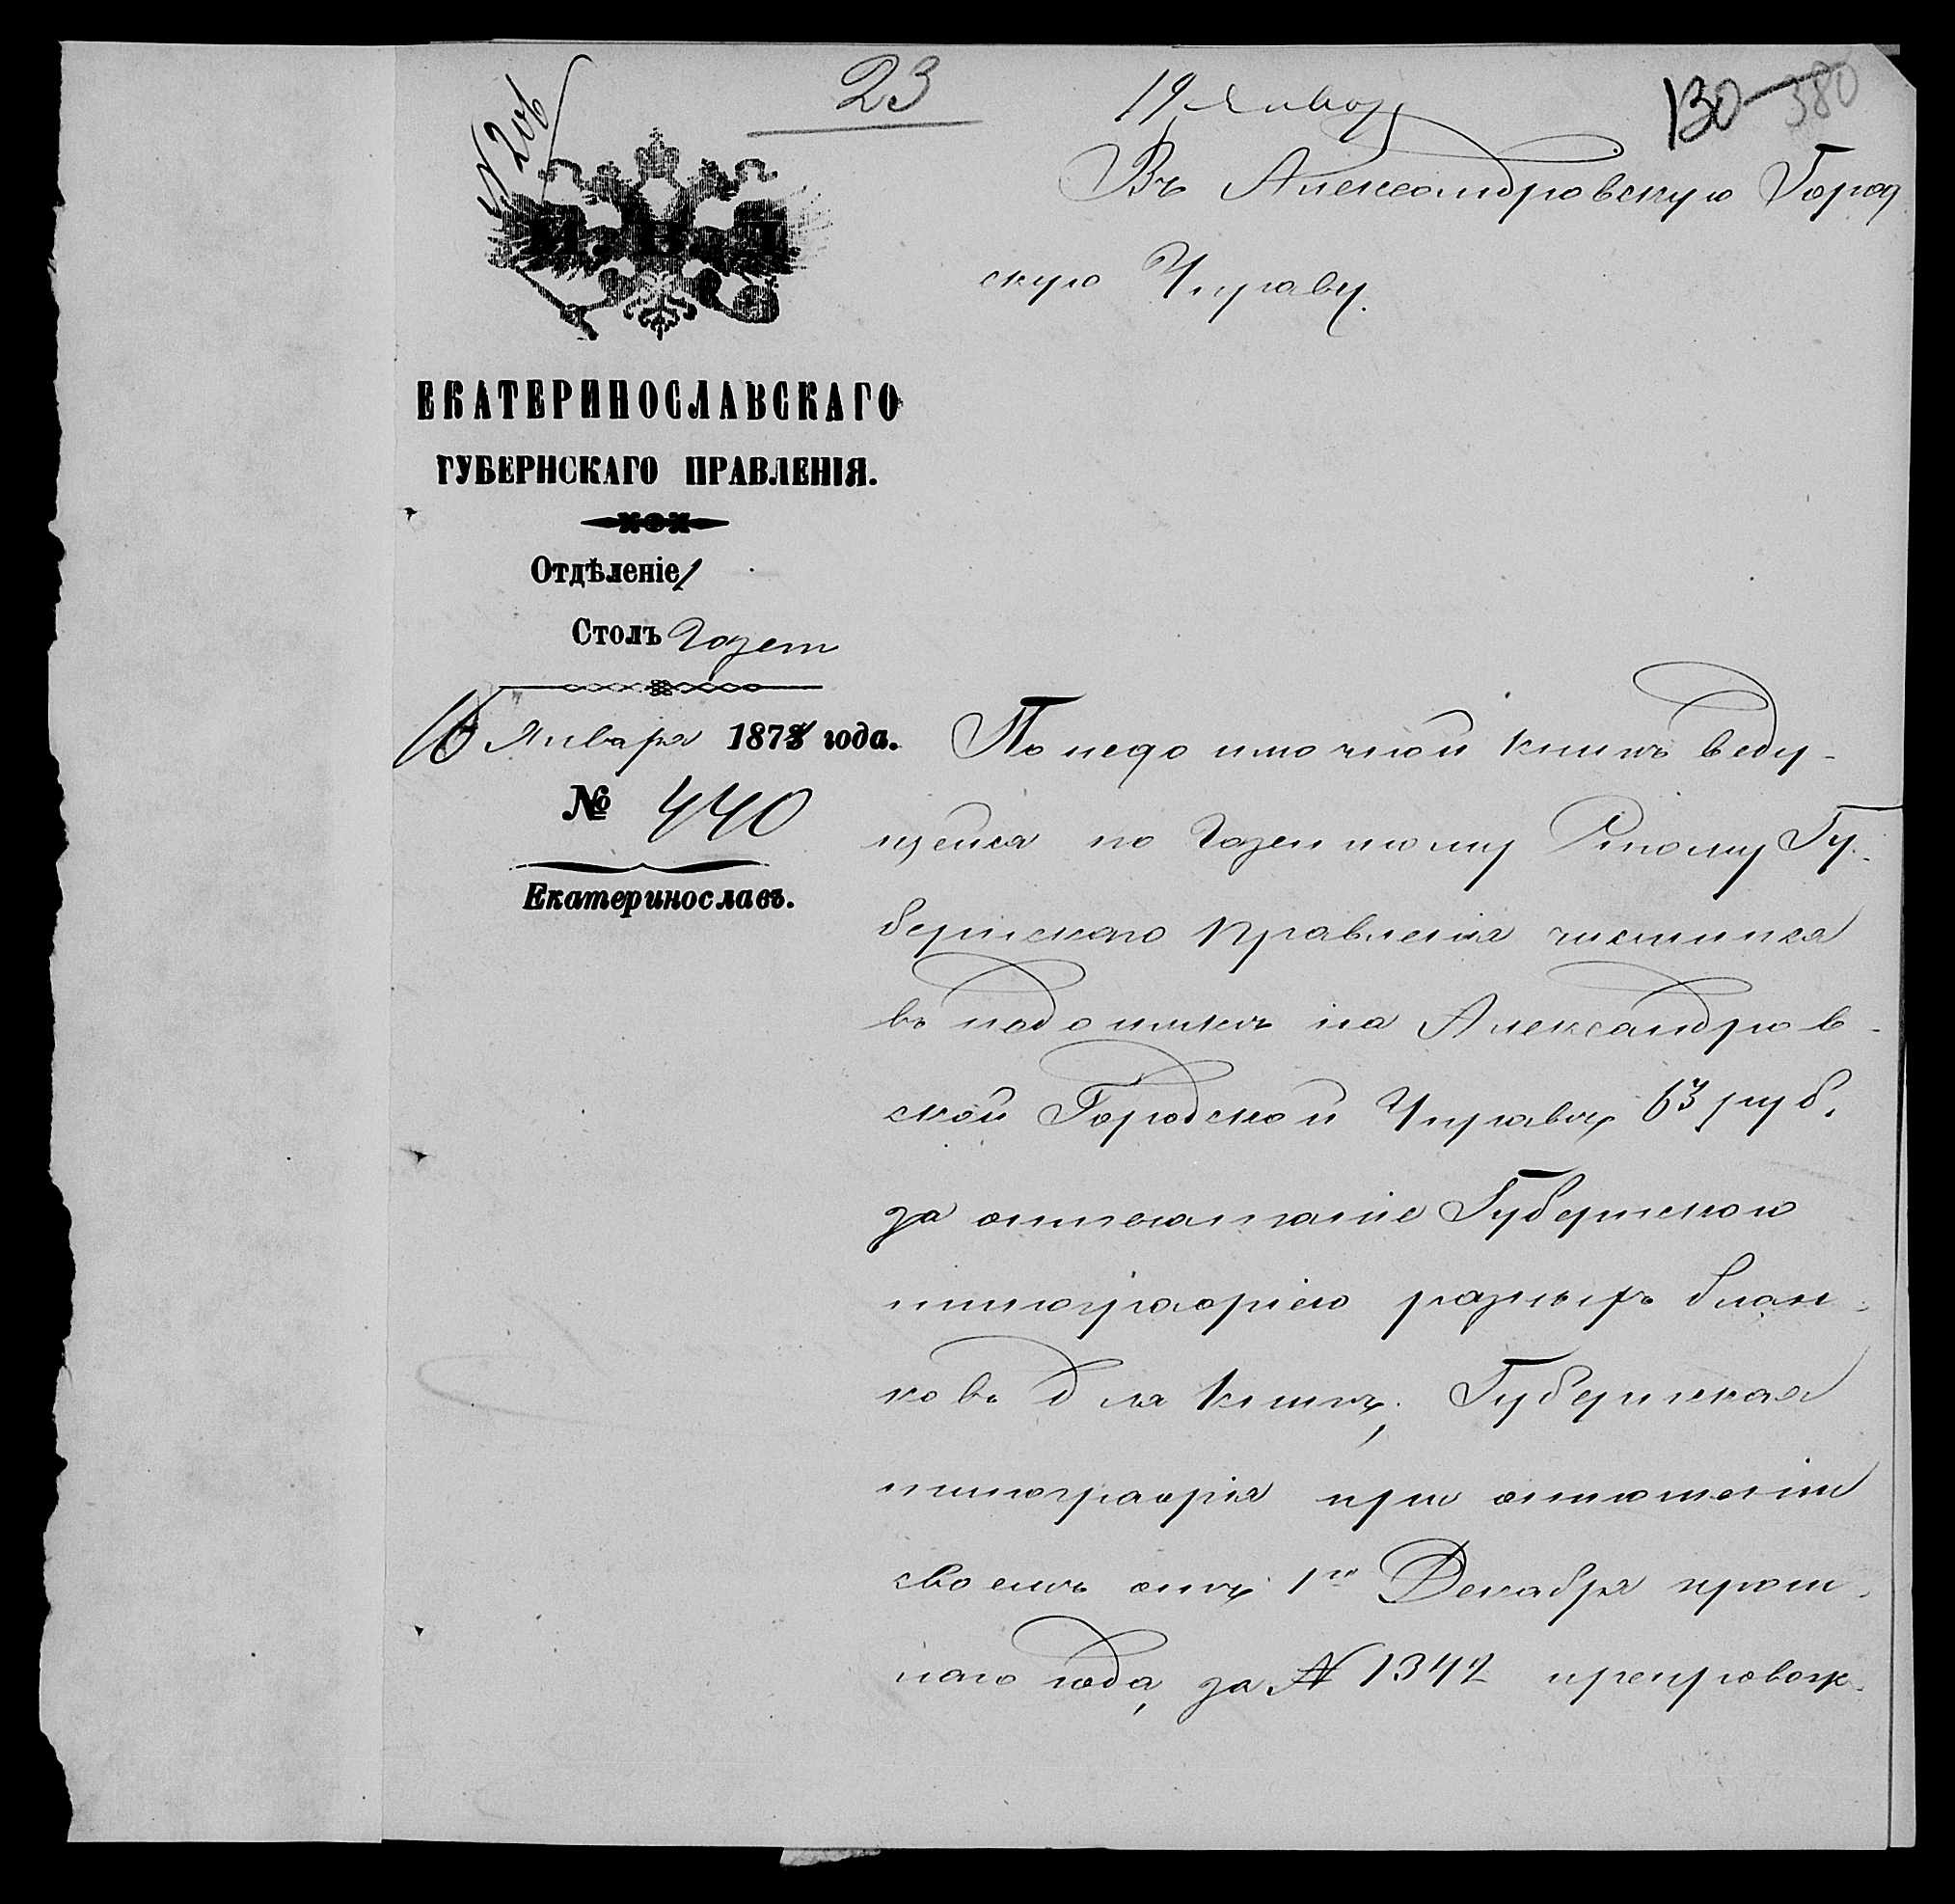 23
19 Январ
130 380
№ 206
Въ Александровскую Город
скую Управу.
М. В. Д.
ЕКАТЕРИНОСЛАВСКАГО
ГУБЕРНСКАГО ПРАВЛЕНІЯ.
Отдѣленіе 1
Столъ Газет
16 Января 1878 года.
№ 440
Екатеринославъ.
По недоимочной книгѣ веду-
щейся по Газетному Столу Гу-
бернскаго Правленія числится
въ недоимкѣ на Александров-
ской Городской Управѣ 63 руб.
за отпечатаніе Губернскою
типографіею разныхъ блан-
ковъ для книгъ, Губернская
типографія при отношеніи
своемъ отъ 1го Декабря прош-
лаго года, за № 1342 препровож-